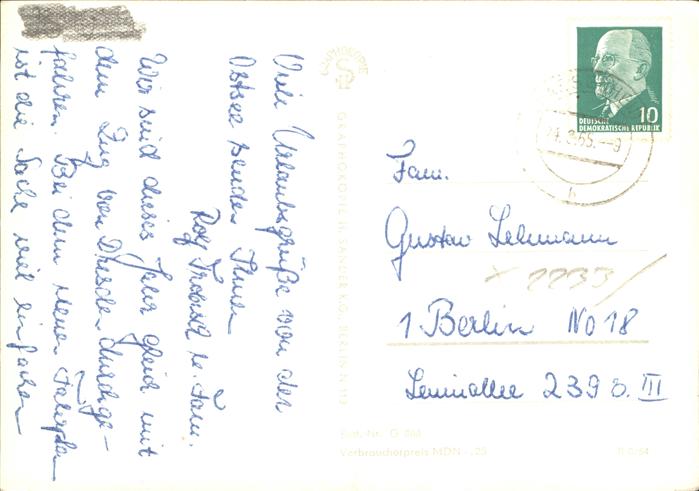 Viele Urlaubsgrüße von der
Ostsee senden Ihnen
Rolf u. Fam.
Wir sind dieses Jahr gleich mit
dem Zug von Dresden durchge-
fahren. Bei dem neuen Fahrplan
ist die Sache viel einfacher
GRAPHOKOPIE
GRAPHOKOPIE H. SANDER KG., BERLIN N 113
Best.-Nr. G
Verbraucherpreis MDN -,25
10
DEUTSCHE
DEMOKRATISCHE REPUBLIK
65. -9
b
Fam.
Gustav Lehmann
1 Berlin NO 18
Leninallee 239 III